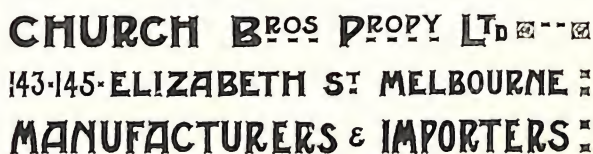 CHURCH BROS PROPY LTD
143-145-ELIZABETH ST MELBOURNE
MANUFACTURERS & IMPORTERS